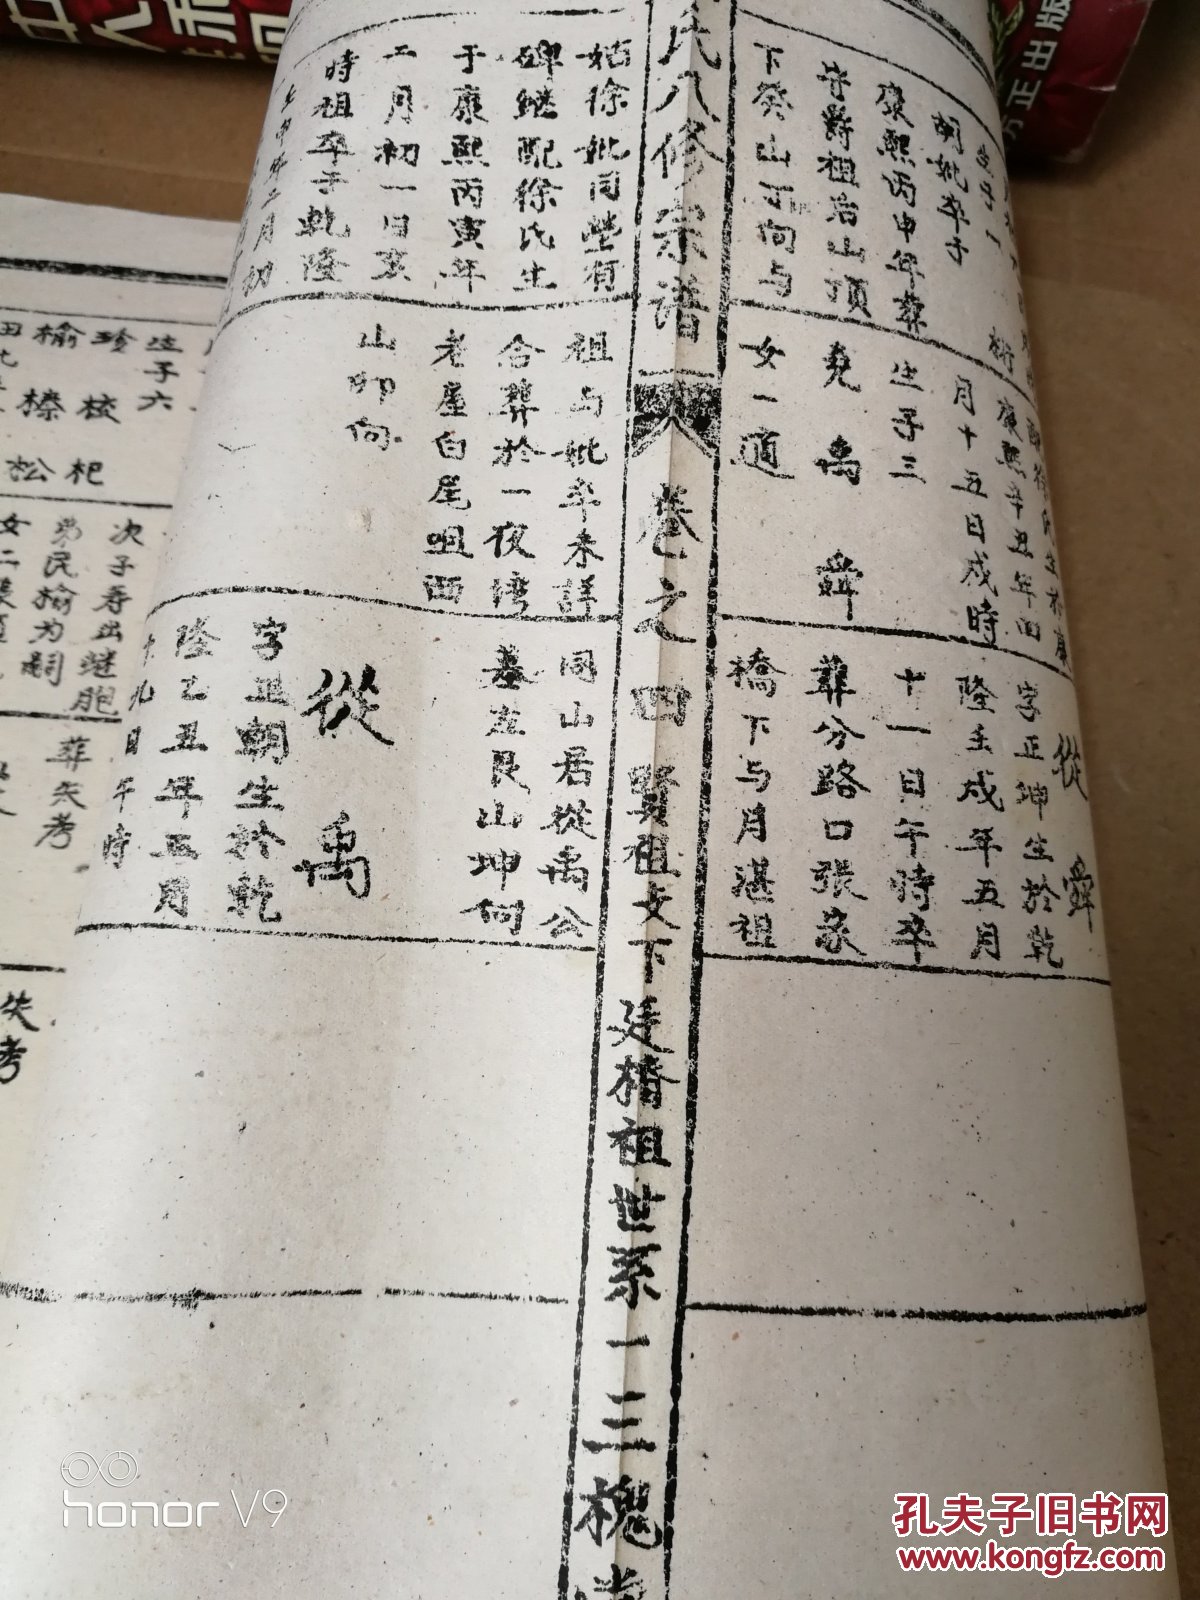 胡妣卒于
康熙丙申年葬
廿爵祖后山頂
下癸山丁向与
月十五日戍時
生子三
堯 禹 舜
女一適
從舜
字正坤生於乾
隆壬戍年五月
十一日午時卒
葬分路口張家
橋下与月湛祖
氏八修宗谱
卷之四 賢祖文下廷楷祖世系一三槐
姑徐妣同塋有
碑継配徐氏生
于康熙丙寅年
二月初一日亥
時祖卒于乾隆
年二月初
祖与妣卒未詳
合葬於一夜湾
老屋白尾咀西
山卯向
同山居從禹公
墓左艮山坤向
從禹
字正朝生於乾
隆乙丑年五月
九日午時
生子六
珍 校 杞
榆 榛 松
次子寿出継胞
弟民榆为嗣
葬失考
失考
正出版
honor V9
孔夫子旧书网
www.kongfz.com